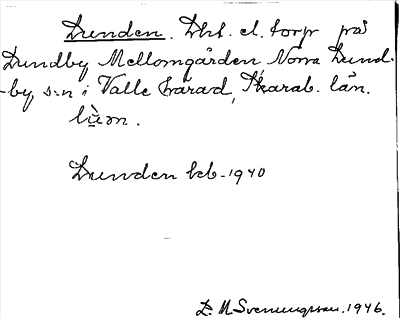 Lunden. Lht. el. torp på
Lundby Mellomgården Norra Lund-
-by s:n i Valle härad, Skarab. län.
Lunden beb. 1940
L. M Svenungsson. 1946.